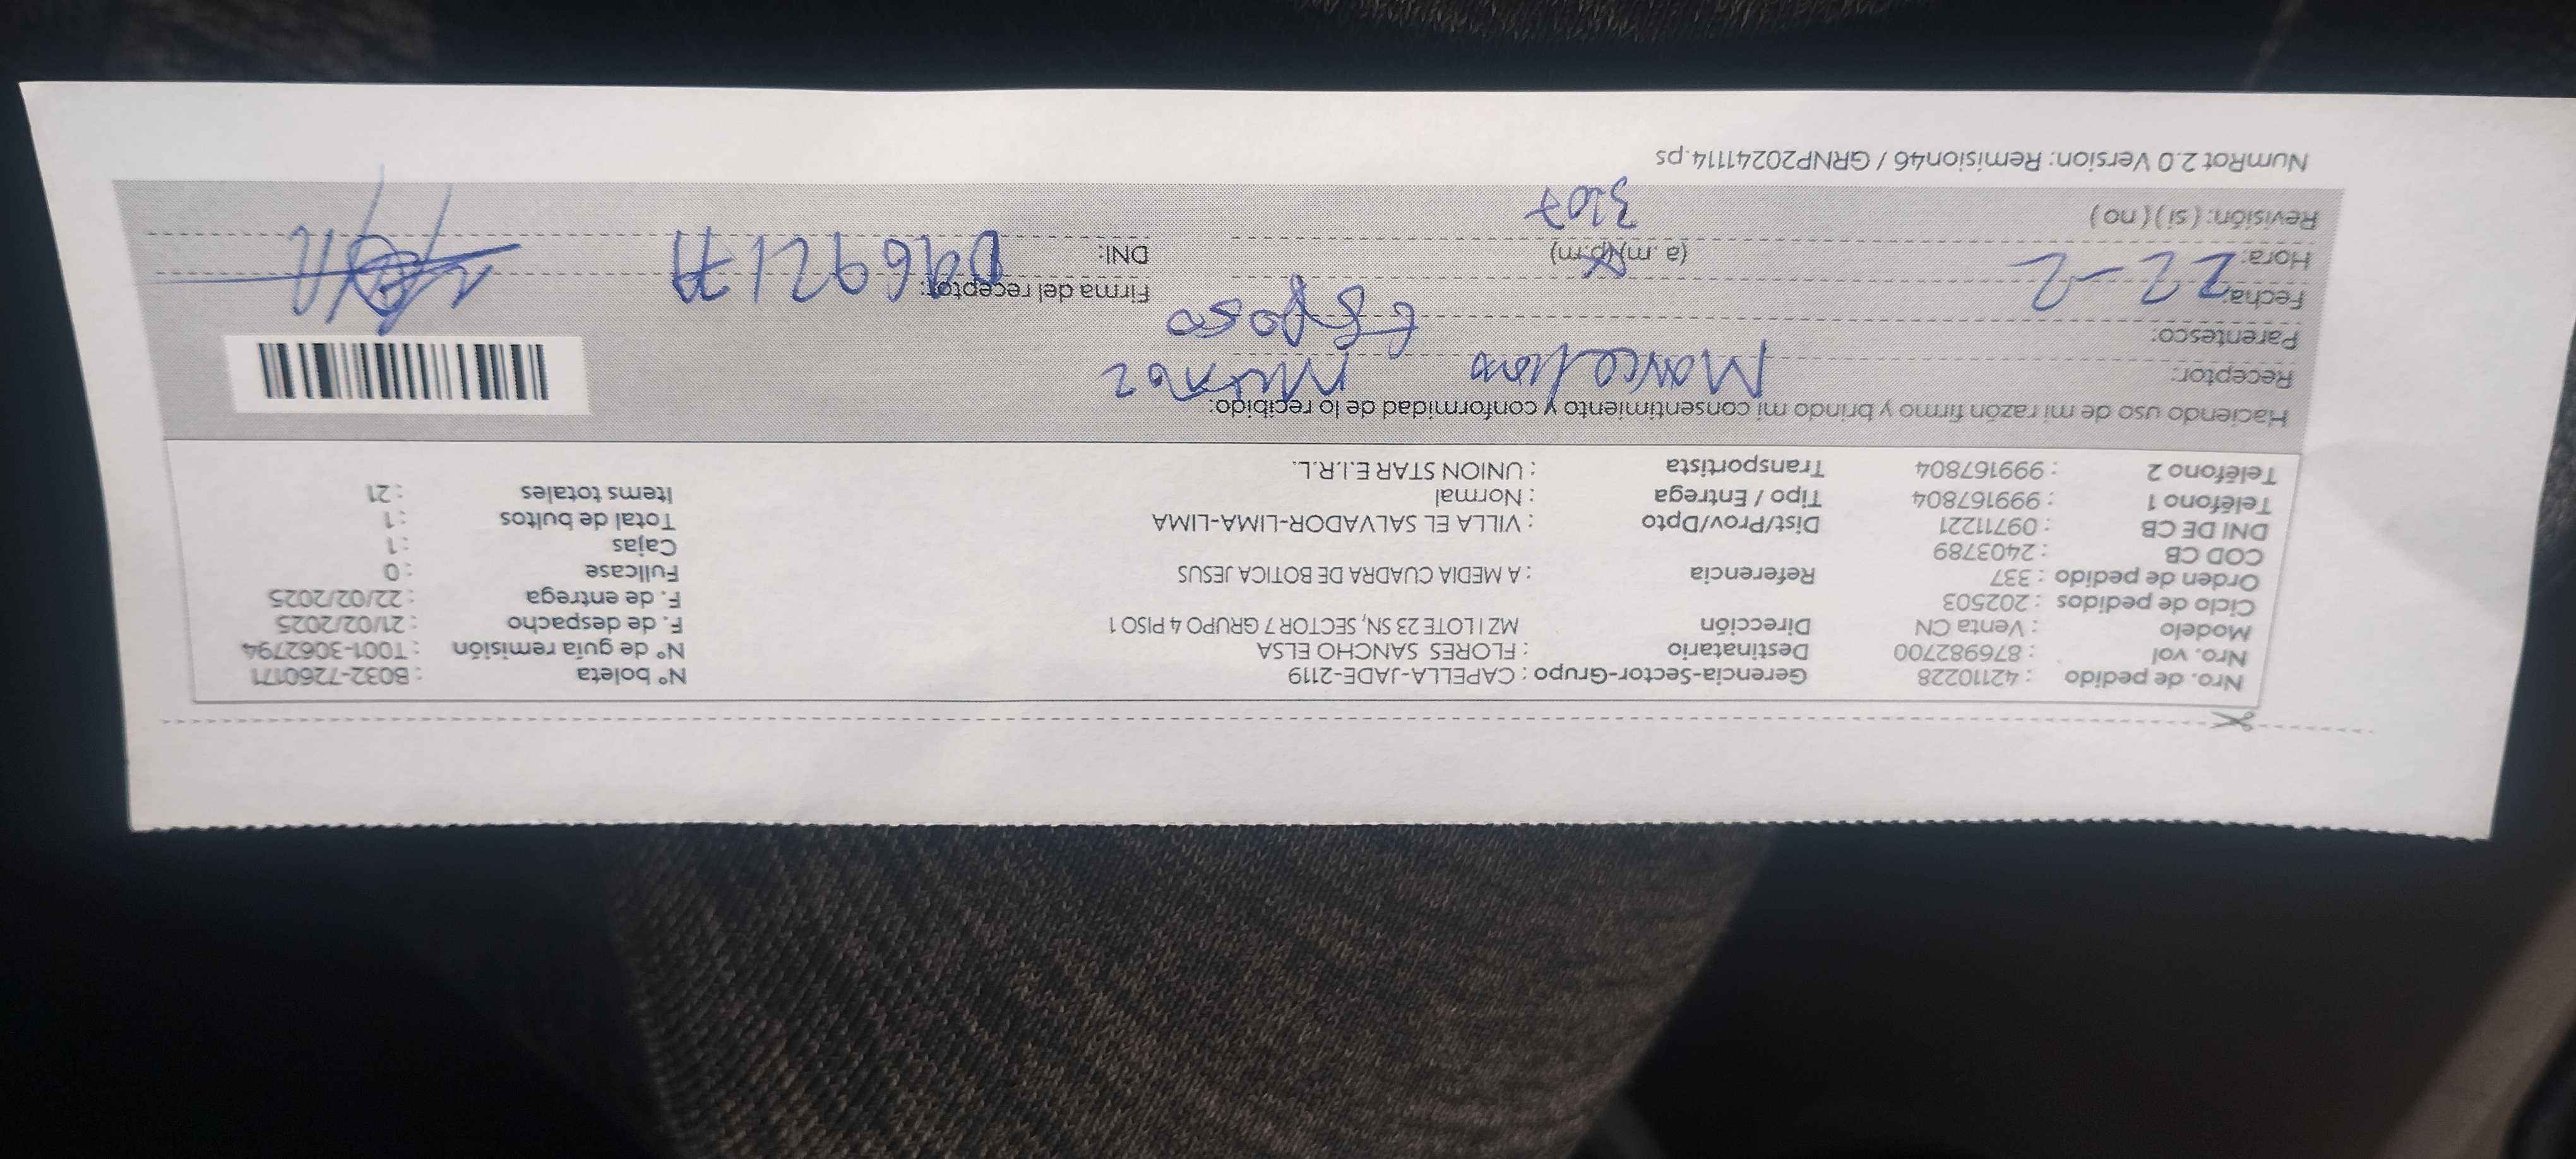 Nro. de pedido : 42110228 Gerencia-Sector-Grupo : CAPELLA-JADE-2119 N° boleta : B032-7260171
Nro. vol : 876982700 Destinatario : FLORES SANCHO ELSA N° de guía remisión : T001-3062794
Modelo : Venta CN Dirección MZ I LOTE 23 SN, SECTOR 7 GRUPO 4 PISO 1 F. de despacho : 21/02/2025
Ciclo de pedidos : 202503 F. de entrega : 22/02/2025
Orden de pedido : 337 Referencia : A MEDIA CUADRA DE BOTICA JESUS Fullcase : 0
COD CB : 2403789 Cajas : 1
DNI DE CB : 09711221 Dist/Prov/Dpto : VILLA EL SALVADOR-LIMA-LIMA Total de bultos : 1
Teléfono 1 : 999167804 Tipo / Entrega : Normal Items totales : 21
Teléfono 2 : 999167804 Transportista : UNION STAR E.I.R.L.
Haciendo uso de mi razón firmo y brindo mi consentimiento y conformidad de lo recibido:
Receptor: Marcelino Muñoz
Parentesco: Esposo
Fecha: 22-2 Firma del receptor:
Hora: (a .m) (p.m) DNI:
Revisión: ( si ) ( no ) 3107
NumRot 2.0 Version: Remision46 / GRNP20241114.ps